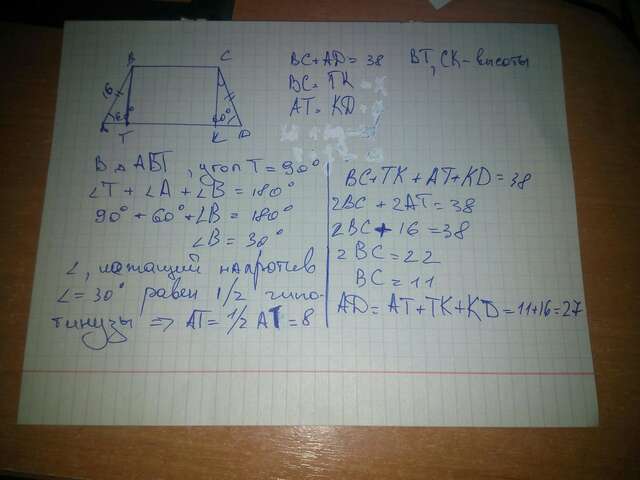 B C
16
A 60° 90° D
T K
BC + AD = 38 BT, CK - высоты
BC = TK
AT = KD
В △ АВТ, угол T = 90°
∠T + ∠A + ∠B = 180°
90° + 60° + ∠B = 180°
∠B = 30°
∠, лежащий напротив
∠ = 30° равен 1/2 гипо-
тинузы ⇒ AT = 1/2 AT = 8
BC + TK + AT + KD = 38
2BC + 2AT = 38
2BC + 16 = 38
2BC = 22
BC = 11
AD = AT + TK + KD = 11+16 = 27